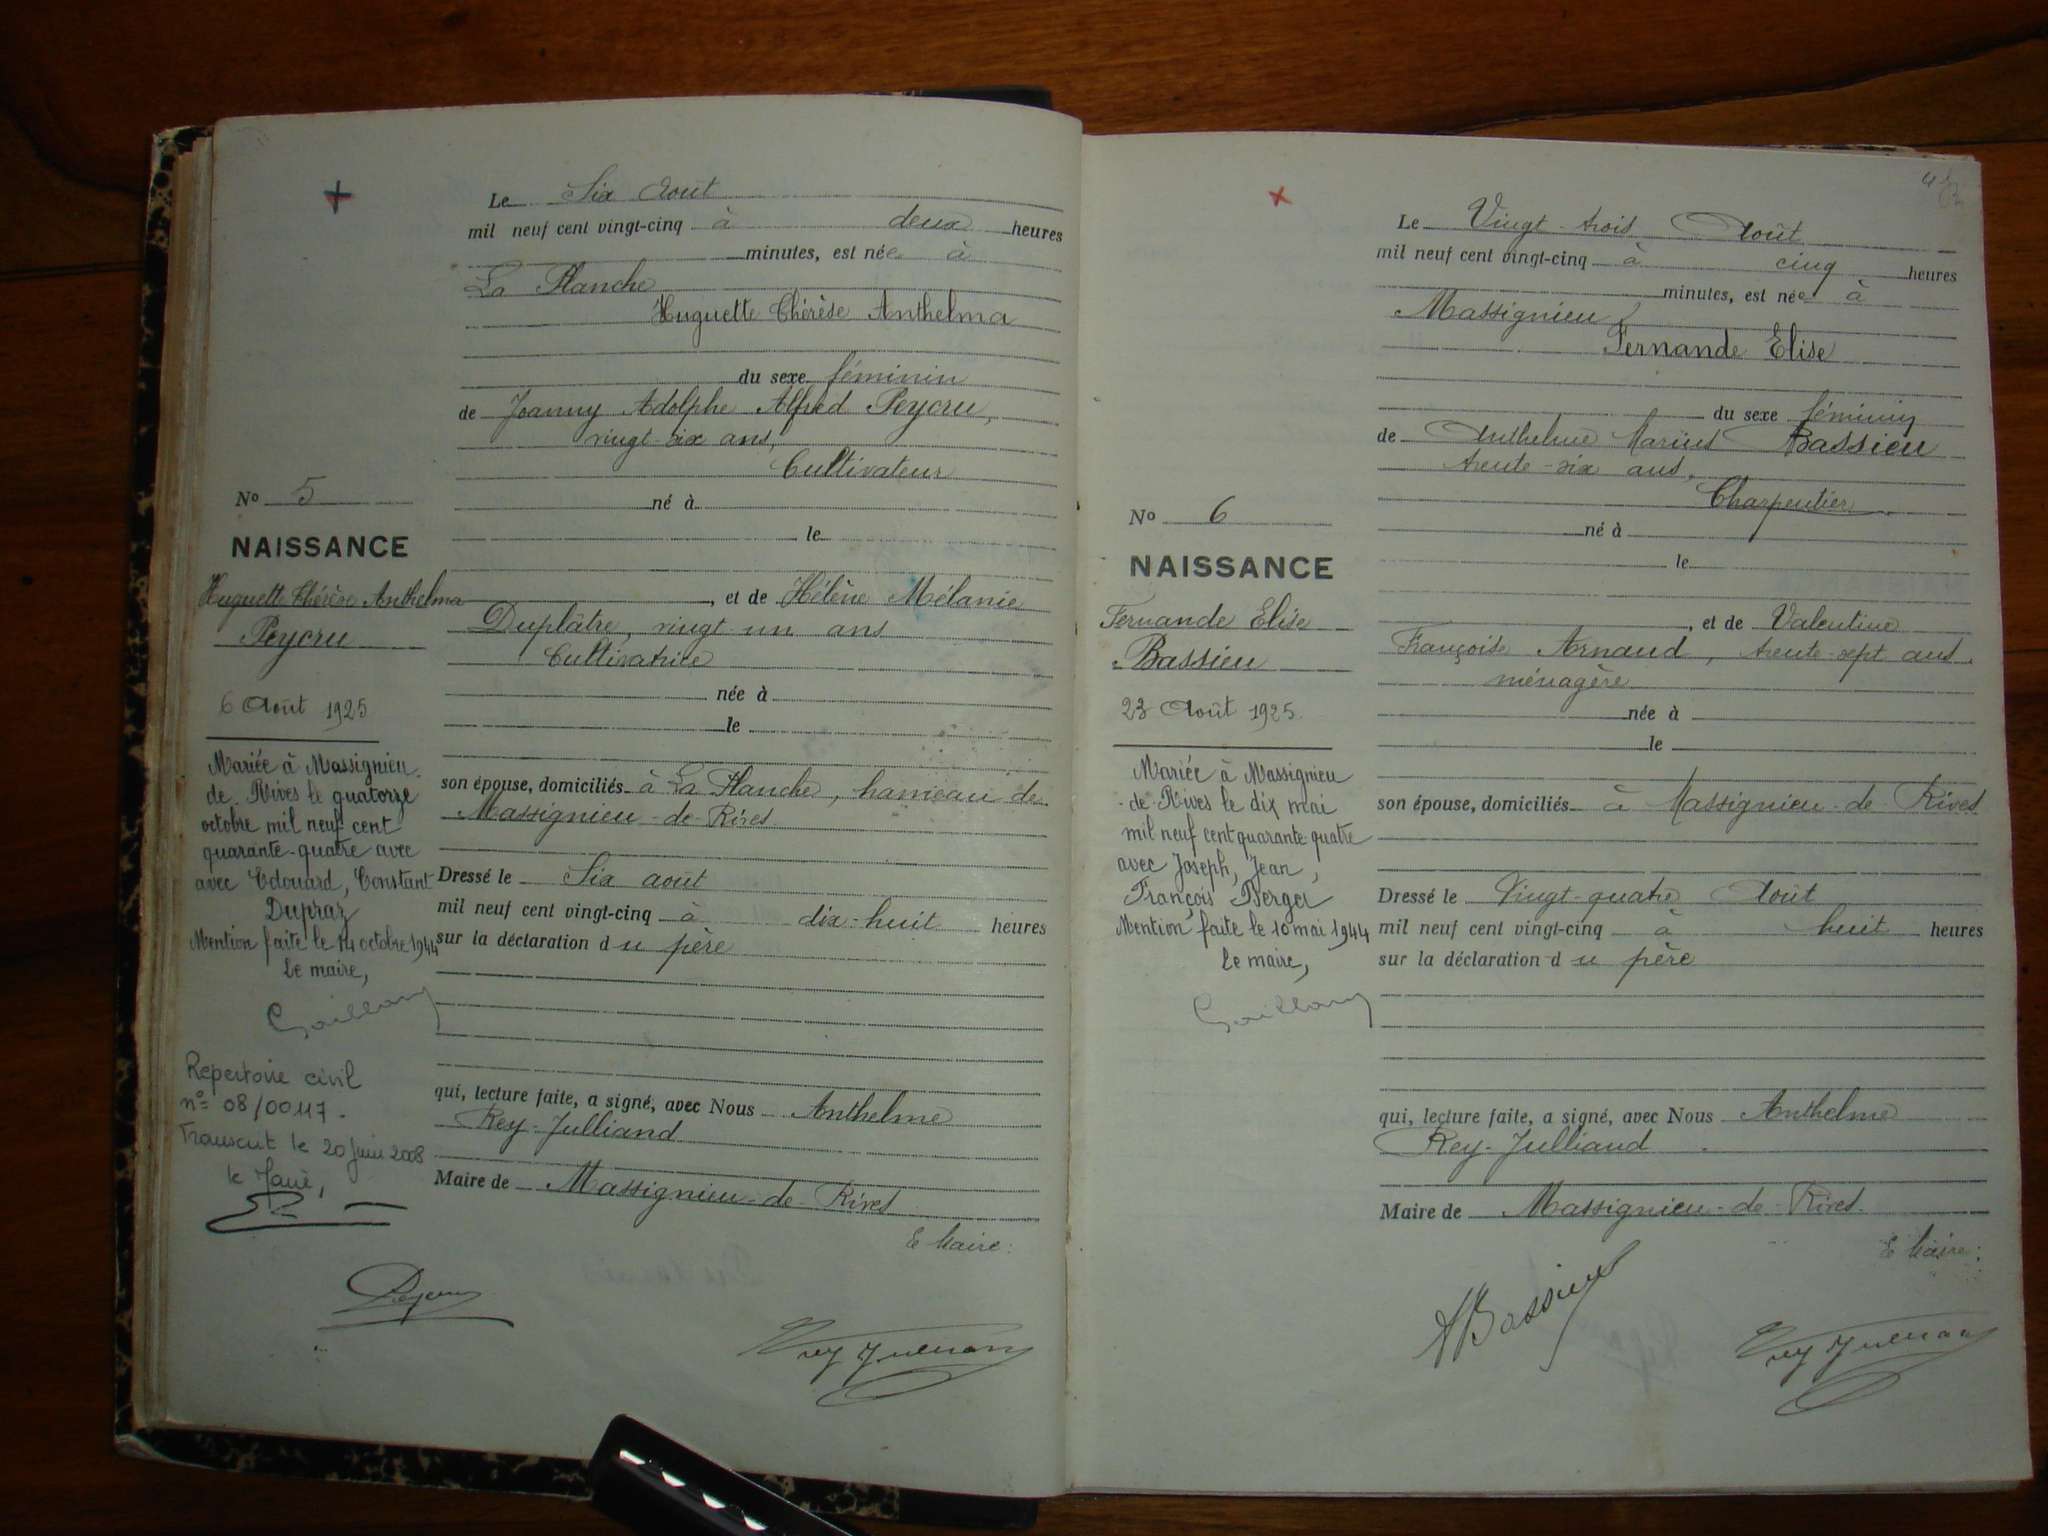 Le Six Août
mil neuf cent vingt-cinq à deux heures
minutes, est née à
La Planche
Huguette Thérèse Anthelma
du sexe féminin
de Joanny Adolphe Alfred Peycru,
vingt-six ans,
Cultivateur
né à
le
, et de Hélène Mélanie
Duplâtre, vingt-un ans
Cultivatrice
née à
le
son épouse, domiciliés à La Planche, hameau de
Massignieu-de-Rives
Dressé le Six aout
mil neuf cent vingt-cinq à dix-huit heures
sur la déclaration du père
qui, lecture faite, a signé, avec Nous Anthelme
Rey-Julliand
Maire de Massignieu-de-Rives
Le Maire:
No 5
NAISSANCE
Huguette Thérèse Anthelma
Peycru
6 Août 1925
Mariée à Massignieu
de Rives le quatorze
octobre mil neuf cent
quarante-quatre avec
avec Edouard, Constant
Dupraz
Mention faite le 14 octobre 1944
Le maire,
Repertoire civil
n° 08/00117.
Transcrit le 20 Juin 2008
le Maire,
Peycru
Rey Julliand
Le Vingt-trois Août
mil neuf cent vingt-cinq à cinq heures
minutes, est née à
Massignieu
Fernande Elise
du sexe féminin
de Anthelme Marius Bassieu
trente-six ans,
Charpentier
né à
le
, et de Valentine
Françoise Arnaud, trente-sept ans,
ménagère
née à
le
son épouse, domiciliés à Massignieu-de-Rives
Dressé le Vingt-quatre Août
mil neuf cent vingt-cinq à huit heures
sur la déclaration du père
qui, lecture faite, a signé, avec Nous Anthelme
Rey-Julliand
Maire de Massignieu-de-Rives.
Le Maire:
No 6
NAISSANCE
Fernande Elise
Bassieu
23 Août 1925.
Mariée à Massignieu
-de-Rives le dix mai
mil neuf cent quarante-quatre
avec Joseph, Jean,
François Berger
Mention faite le 10 mai 1944
Le maire,
ABassieu
Rey Julliand